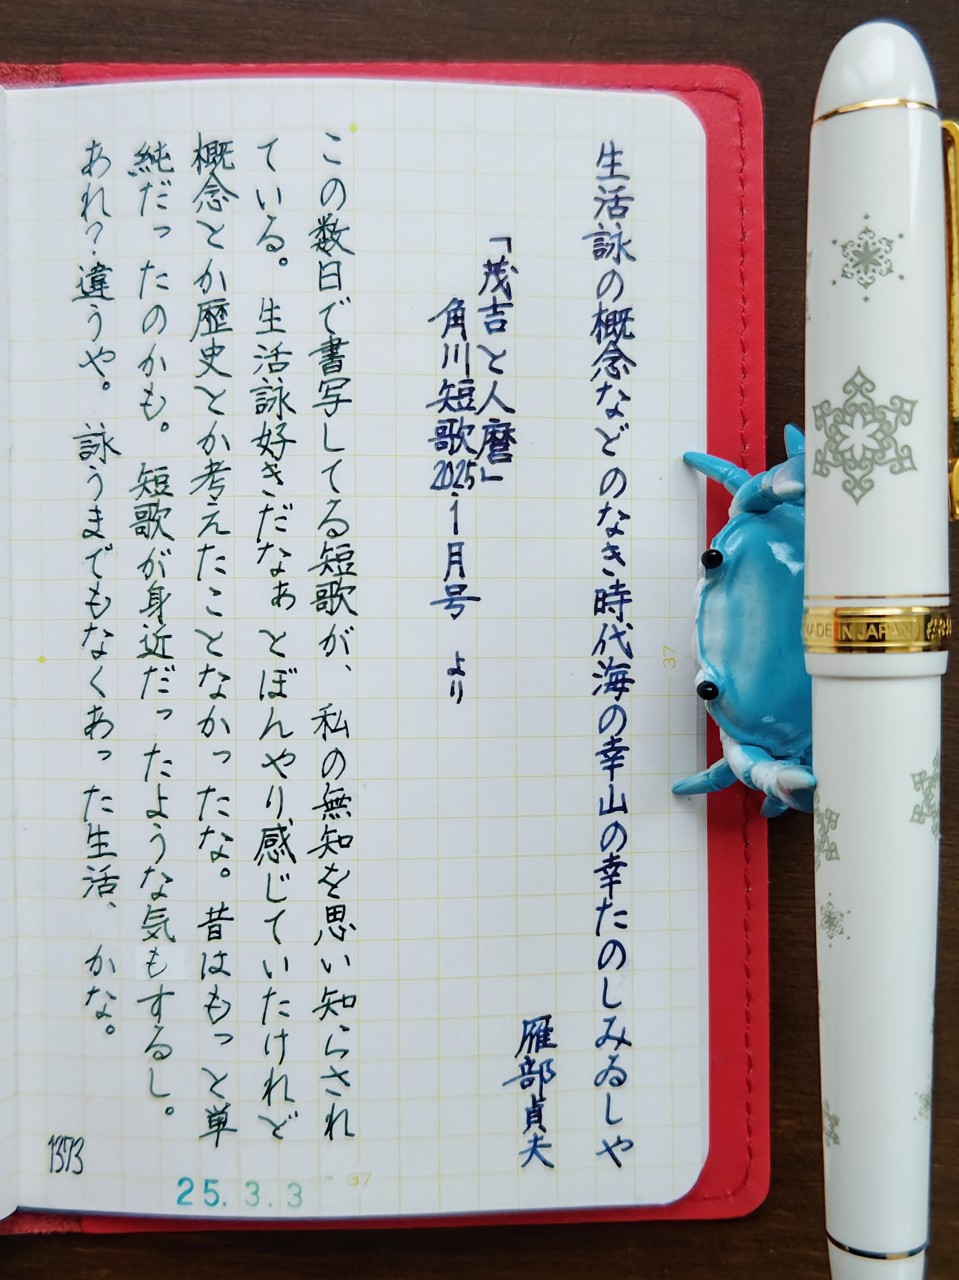 生活詠の概念などのなき時代海の幸山の幸たのしみゐしや
雁部貞夫
「茂吉と人麿」
角川短歌2025・1月号 より
この数日で書写してる短歌が、私の無知を思い知らされ
ている。生活詠好きだなぁとぼんやり感じていたけれど
概念とか歴史とか考えたことなかったな。昔はもっと単
純だったのかも。短歌が身近だったような気もするし。
あれ?違うや。詠うまでもなくあった生活、かな。
1373
25.3.3
37
37
MADE IN JAPAN